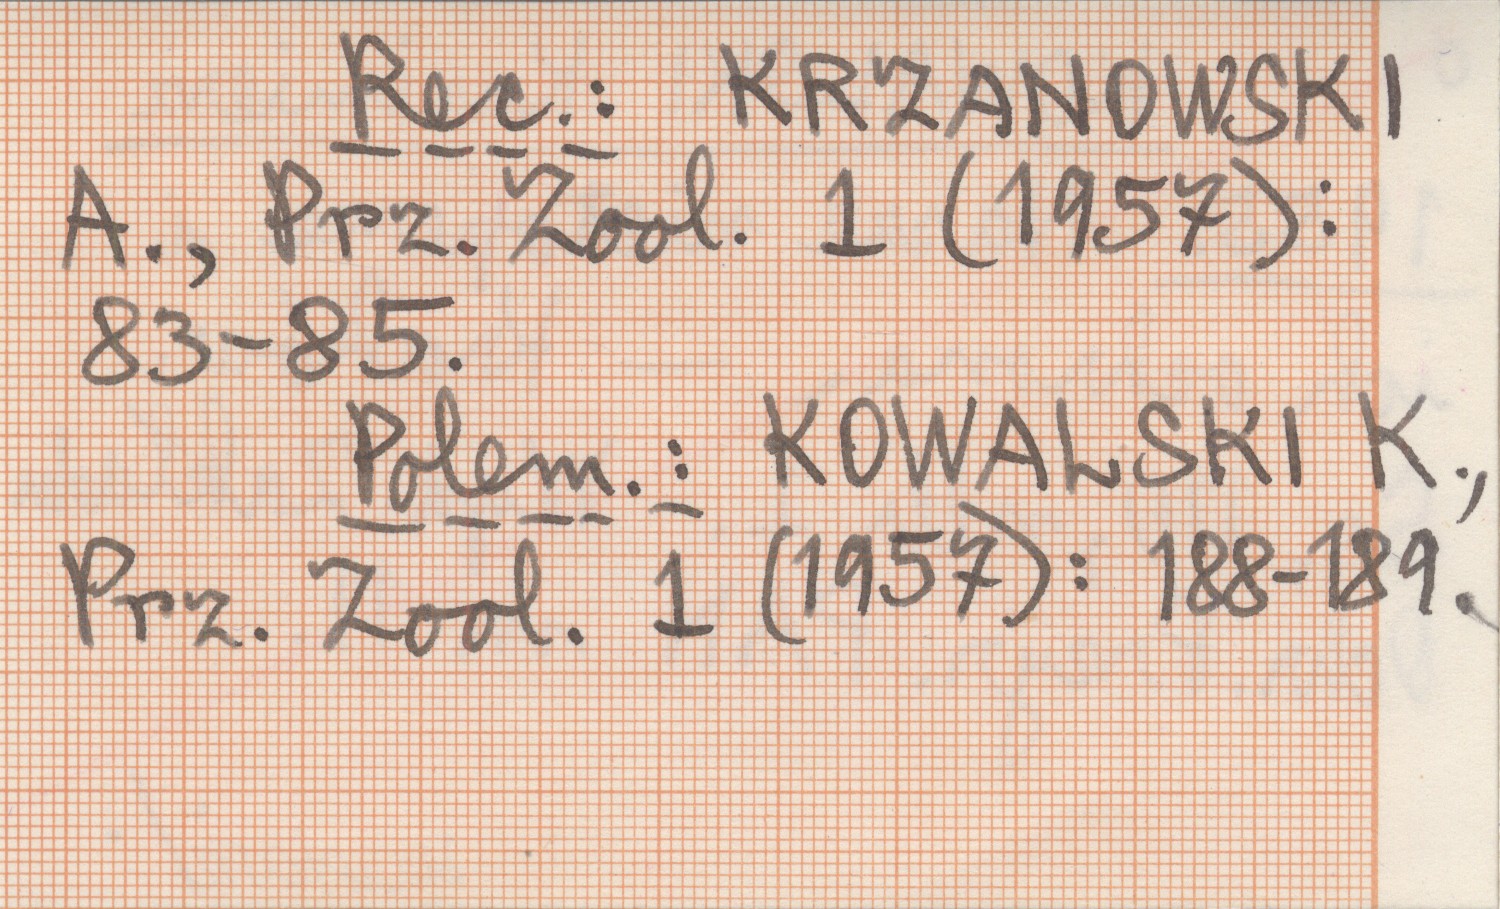 Rec.: KRZANOWSKI
A., Prz. Zool. 1 (1957):
83-85.
Polem.: KOWALSKI K.,
Prz. Zool. 1 (1957): 188-189.